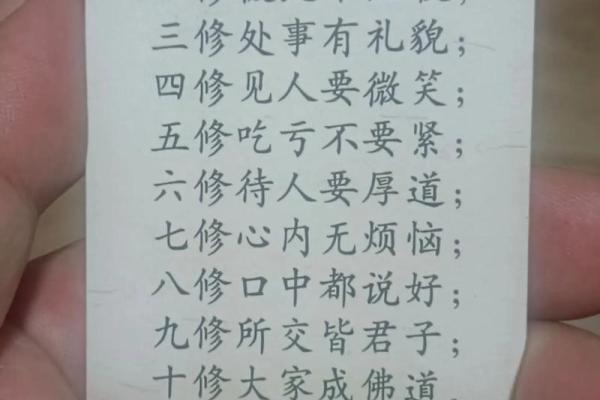 三修处事有礼貌；
四修见人要微笑；
五修吃亏不要紧；
六修待人要厚道；
七修心内无烦恼；
八修口中都说好；
九修所交皆君子；
十修大家成佛道